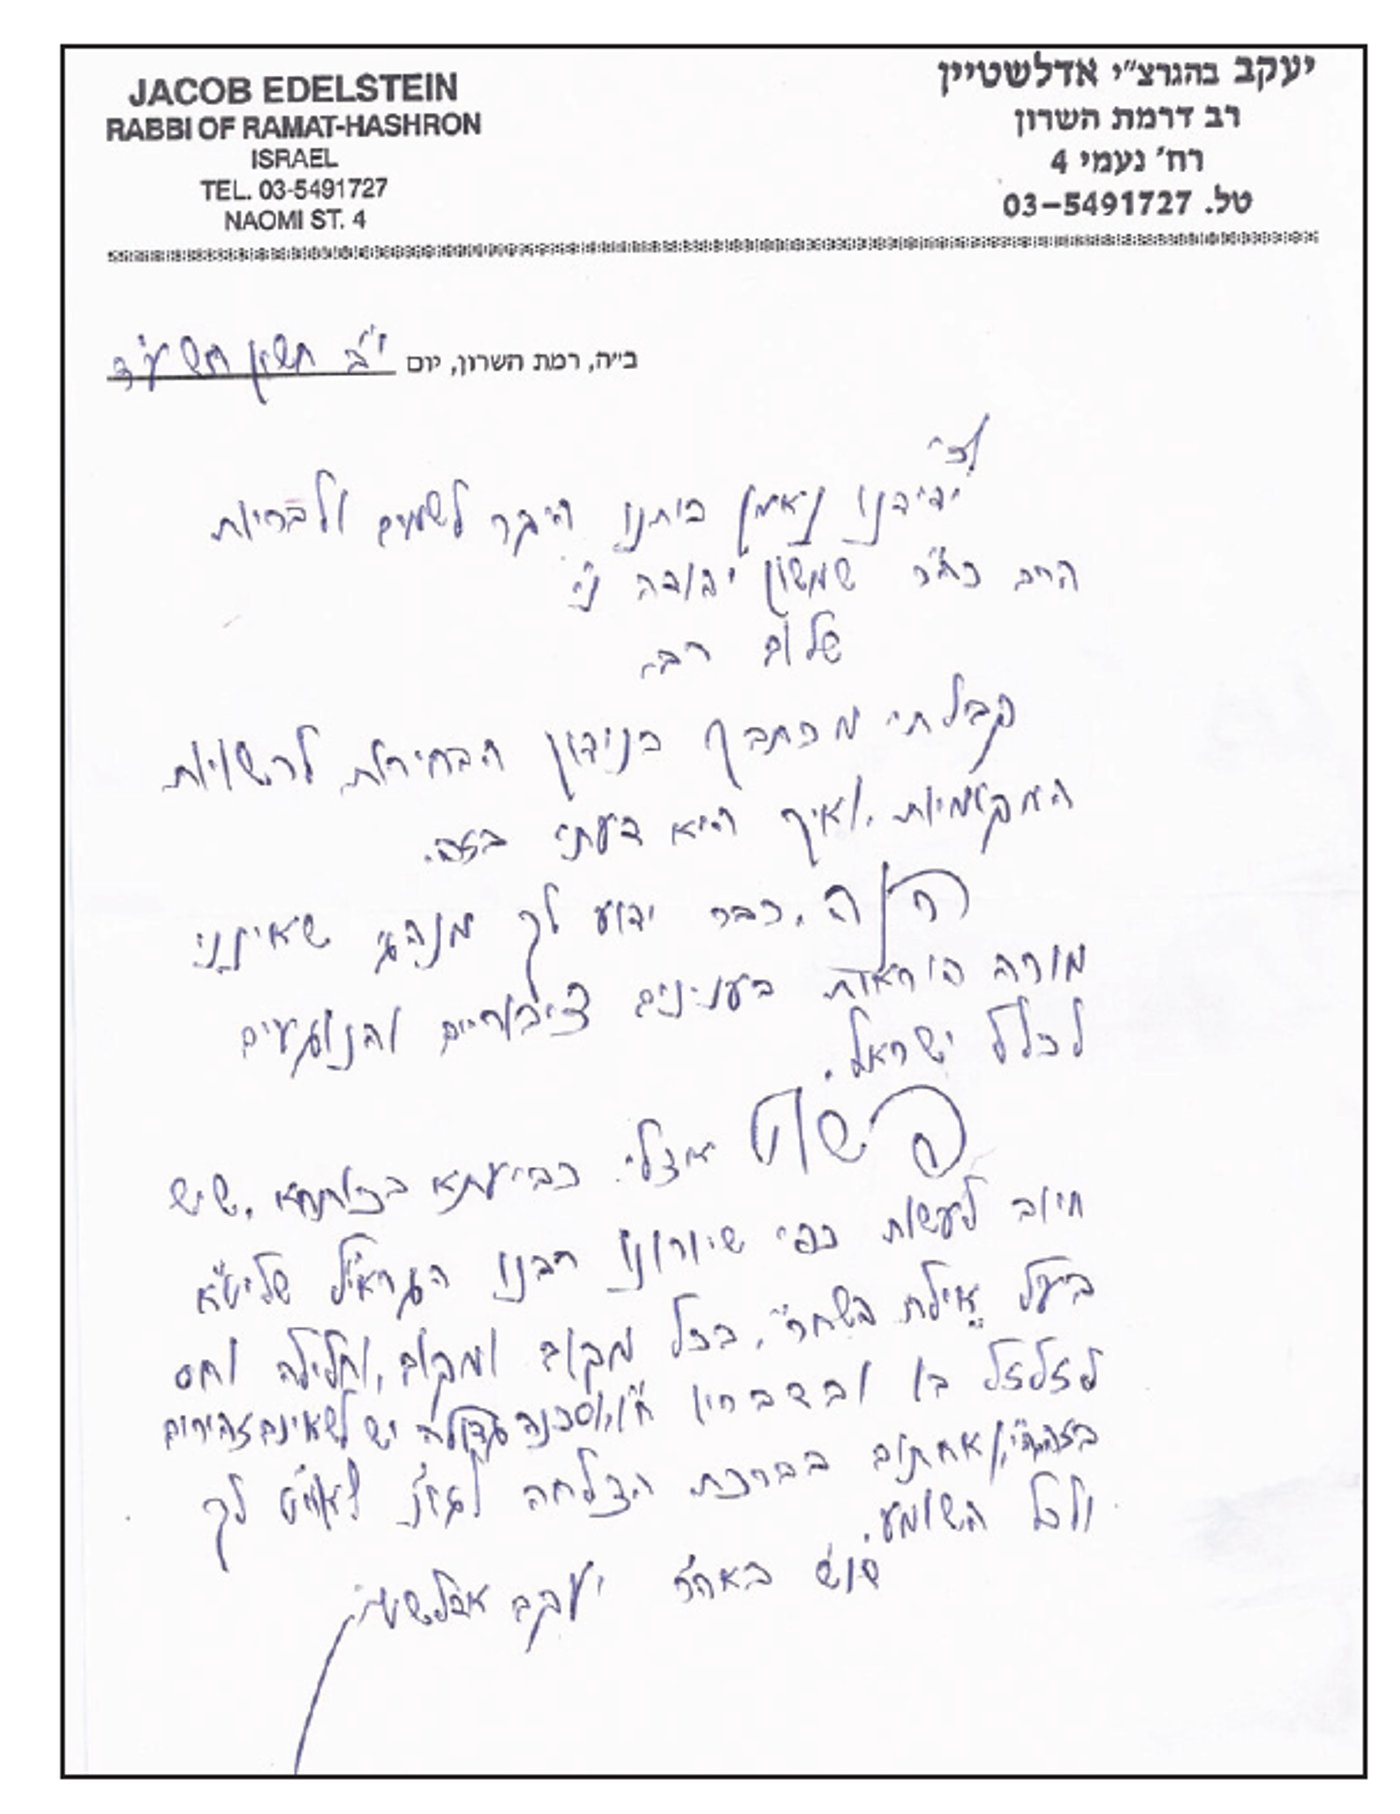 JACOB EDELSTEIN
RABBI OF RAMAT-HASHRON
ISRAEL
TEL. 03-5491727
NAOMI ST. 4
יעקב בהגרצ"י אדלשטיין
רב דרמת השרון
רח' נעמי 4
טל. 03-5491727
ב"ה, רמת השרון, יום י"ב חשון תשע"ד
לכ'
ידידנו נאמן ביתנו היקר לשמים ולבריות
הרב כה"ר שמשון יהודה נ"י
שלום רב,
קבלתי מכתבך בנידון הבחירות לרשויות
המקומיות, ואיך היא דעתי בזה.
הנה, כבר ידוע לך מנהגי שאינני
מורה הוראות בענינים ציבוריים והנוגעים
לכלל ישראל.
פשוט אצלי כביעתא בכותחא, שיש
חיוב לעשות כפי שיורונו רבנו הגראי"ל שליט"א
בעל "אילת השחר", בכל מקום ומקום, וחלילה וחס
לזלזל בו ובדבריו ח"ו, וסכנה גדולה יש לשאינם זהירים
בזה ה"י, ואחתום בברכת הצלחה לך
ולכל השומע.
באה"ר יעקב אדלשטיין